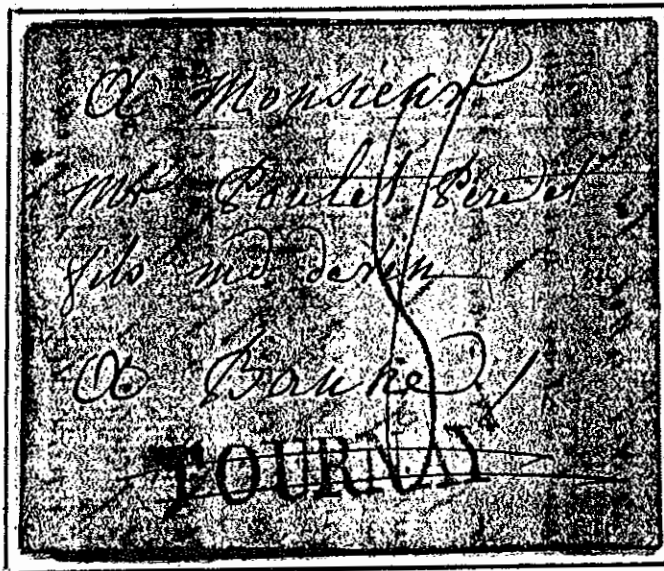 A Monsieur
Mr Poulet Pere et
fils md de vin
A Baune
TOURNAY